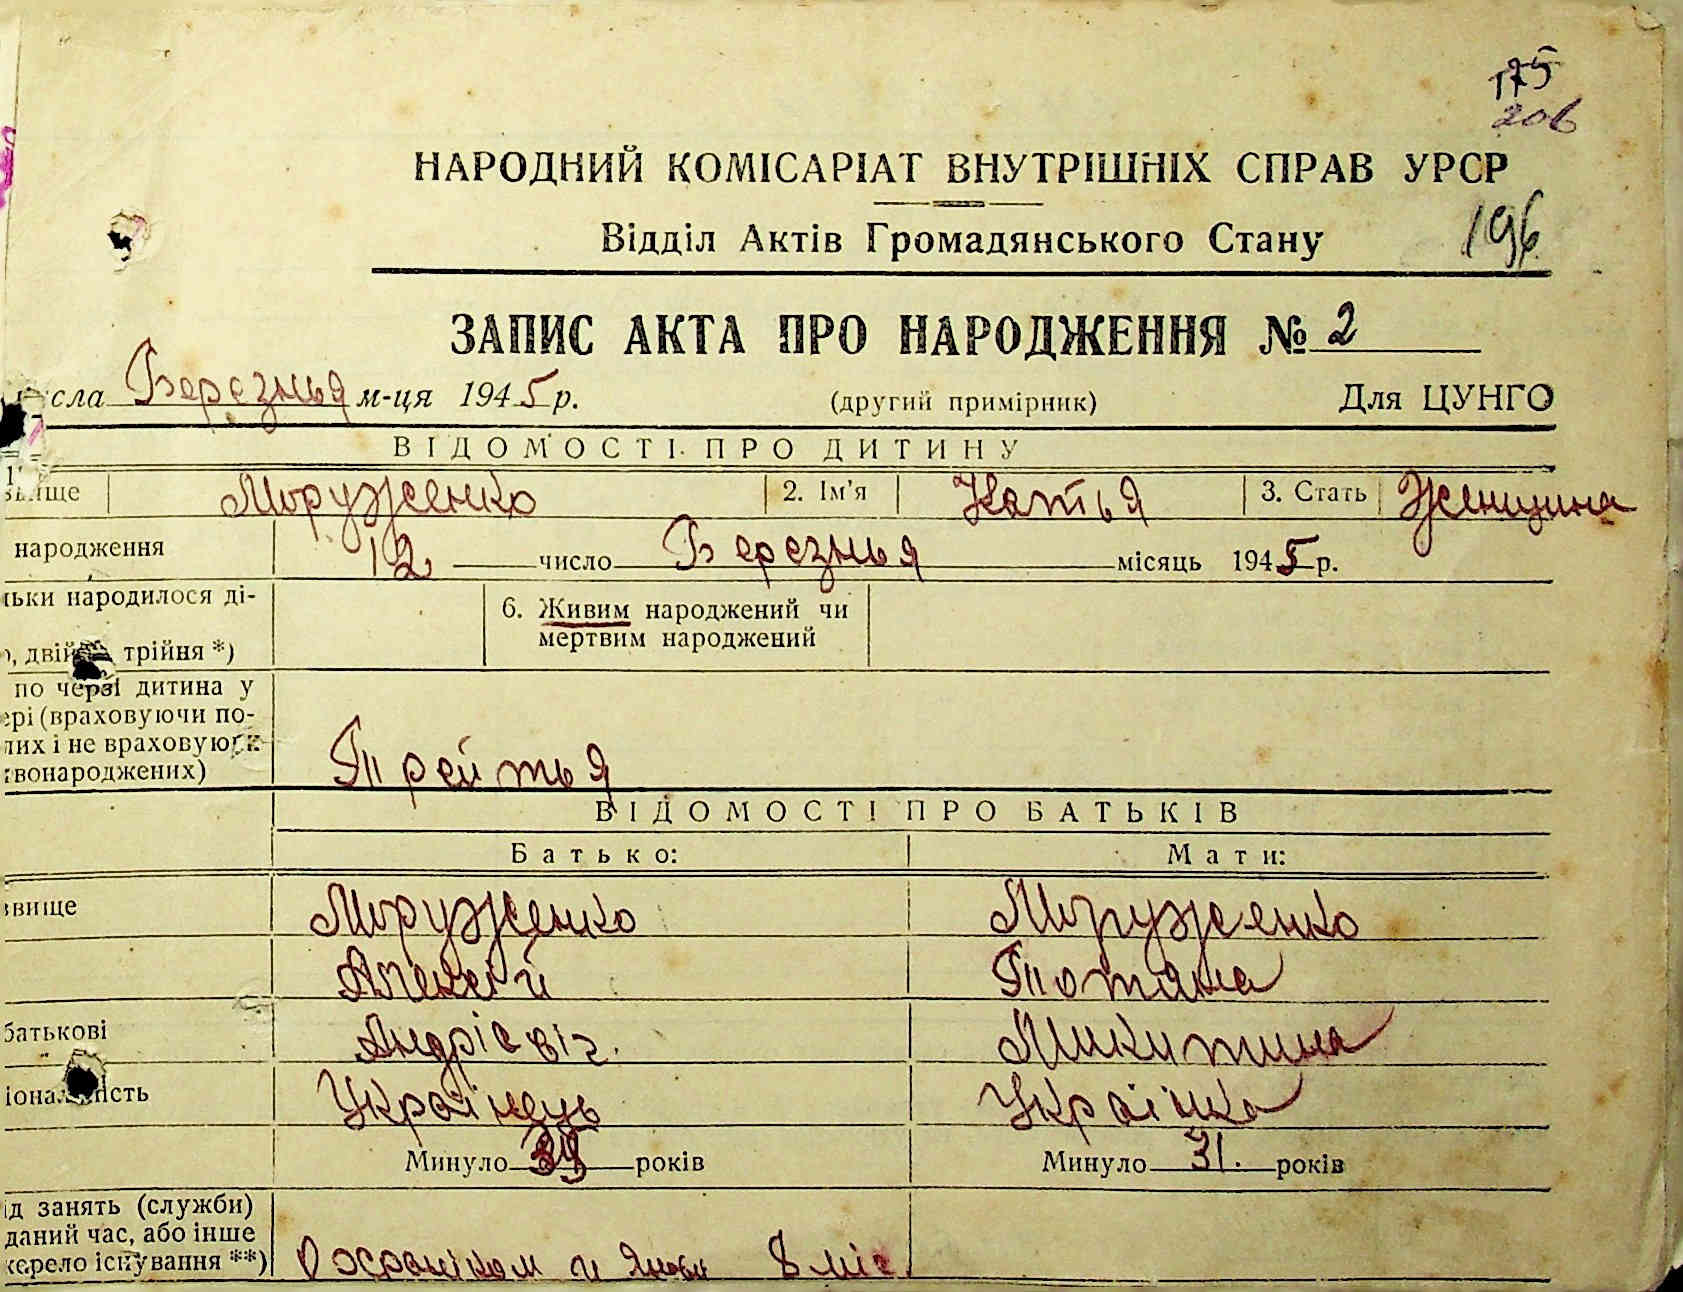 175
206
НАРОДНИЙ КОМІСАРІАТ ВНУТРІШНІХ СПРАВ УРСР
Відділ Актів Громадянського Стану 196
ЗАПИС АКТА ПРО НАРОДЖЕННЯ № 2
сла Березнья м-ця 1945 р. (другий примірник) Для ЦУНГО
ВІДОМОСТІ ПРО ДИТИНУ
ище Моруженко 2. Ім'я Катья 3. Стать Женщина
народження 12 число Березнья місяць 1945 р.
льки народилося ді-
6. Живим народжений чи
мертвим народжений
о, двійня, трійня *)
по черзі дитина у
ері (враховуючи по-
лих і не враховуюч
твонароджених) Трейтья
ВІДОМОСТІ ПРО БАТЬКІВ
Батько: Мати:
звище Моруженко Моруженко
Алексій Тотяна
батькові Андрієвіч. Микитина
іональність Українець Украінка
Минуло 39 років Минуло 31. років
ід занять (служби)
даний час, або інше
жерело існування **) Охраніком 8 міс.